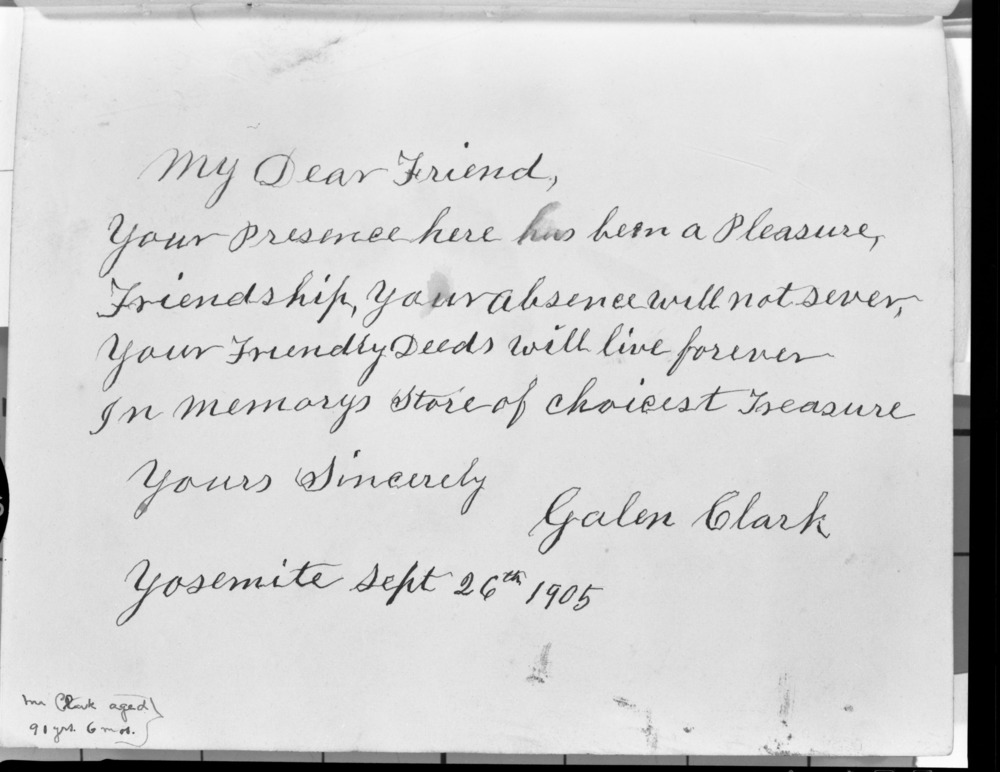 My Dear Friend,
Your Presence here has been a Pleasure,
Friendship, Your absence will not sever,
Your Friendly Deeds will live forever
In memorys Store of choicest Treasure
Yours Sincerely
Galen Clark
Yosemite Sept 26th 1905
Mr Clark aged
91 yrs. 6 mos.